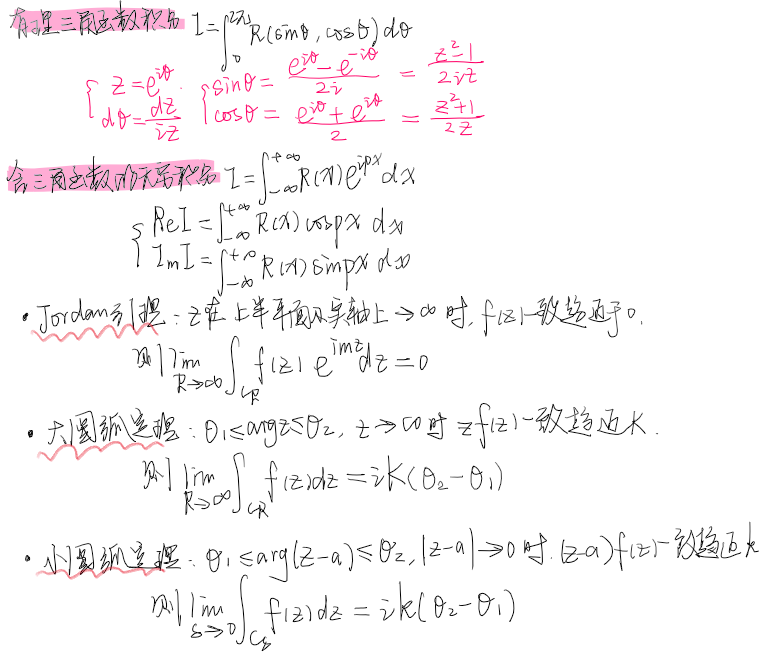 有理三角函数积分 I=∫₀^{2π} R(sinθ, cosθ) dθ
{ z=e^{iθ} { sinθ = (e^{iθ} - e^{-iθ})/2i = (z²-1)/2iz
dθ = dz/iz cosθ = (e^{iθ} + e^{iθ})/2 = (z²+1)/2z
含三角函数的无穷积分 I=∫_{-∞}^{+∞} R(x) e^{ipx} dx
{ ReI = ∫_{-∞}^{+∞} R(x) cospx dx
ImI = ∫_{-∞}^{+∞} R(x) sinpx dx
• Jordan引理: z在上半平面及实轴上→∞时, f(z)一致趋近于0.
则 lim_{R→∞} ∫_{C_R} f(z) e^{imz} dz = 0
• 大圆弧定理: θ₁≤argz≤θ₂, z→∞时 zf(z)一致趋近K.
则 lim_{R→∞} ∫_{C_R} f(z)dz = iK(θ₂-θ₁)
• 小圆弧定理: θ₁≤arg(z-a)≤θ₂, |z-a|→0时. (z-a)f(z)一致趋近k
则 lim_{δ→0} ∫_{C_δ} f(z)dz = ik(θ₂-θ₁)